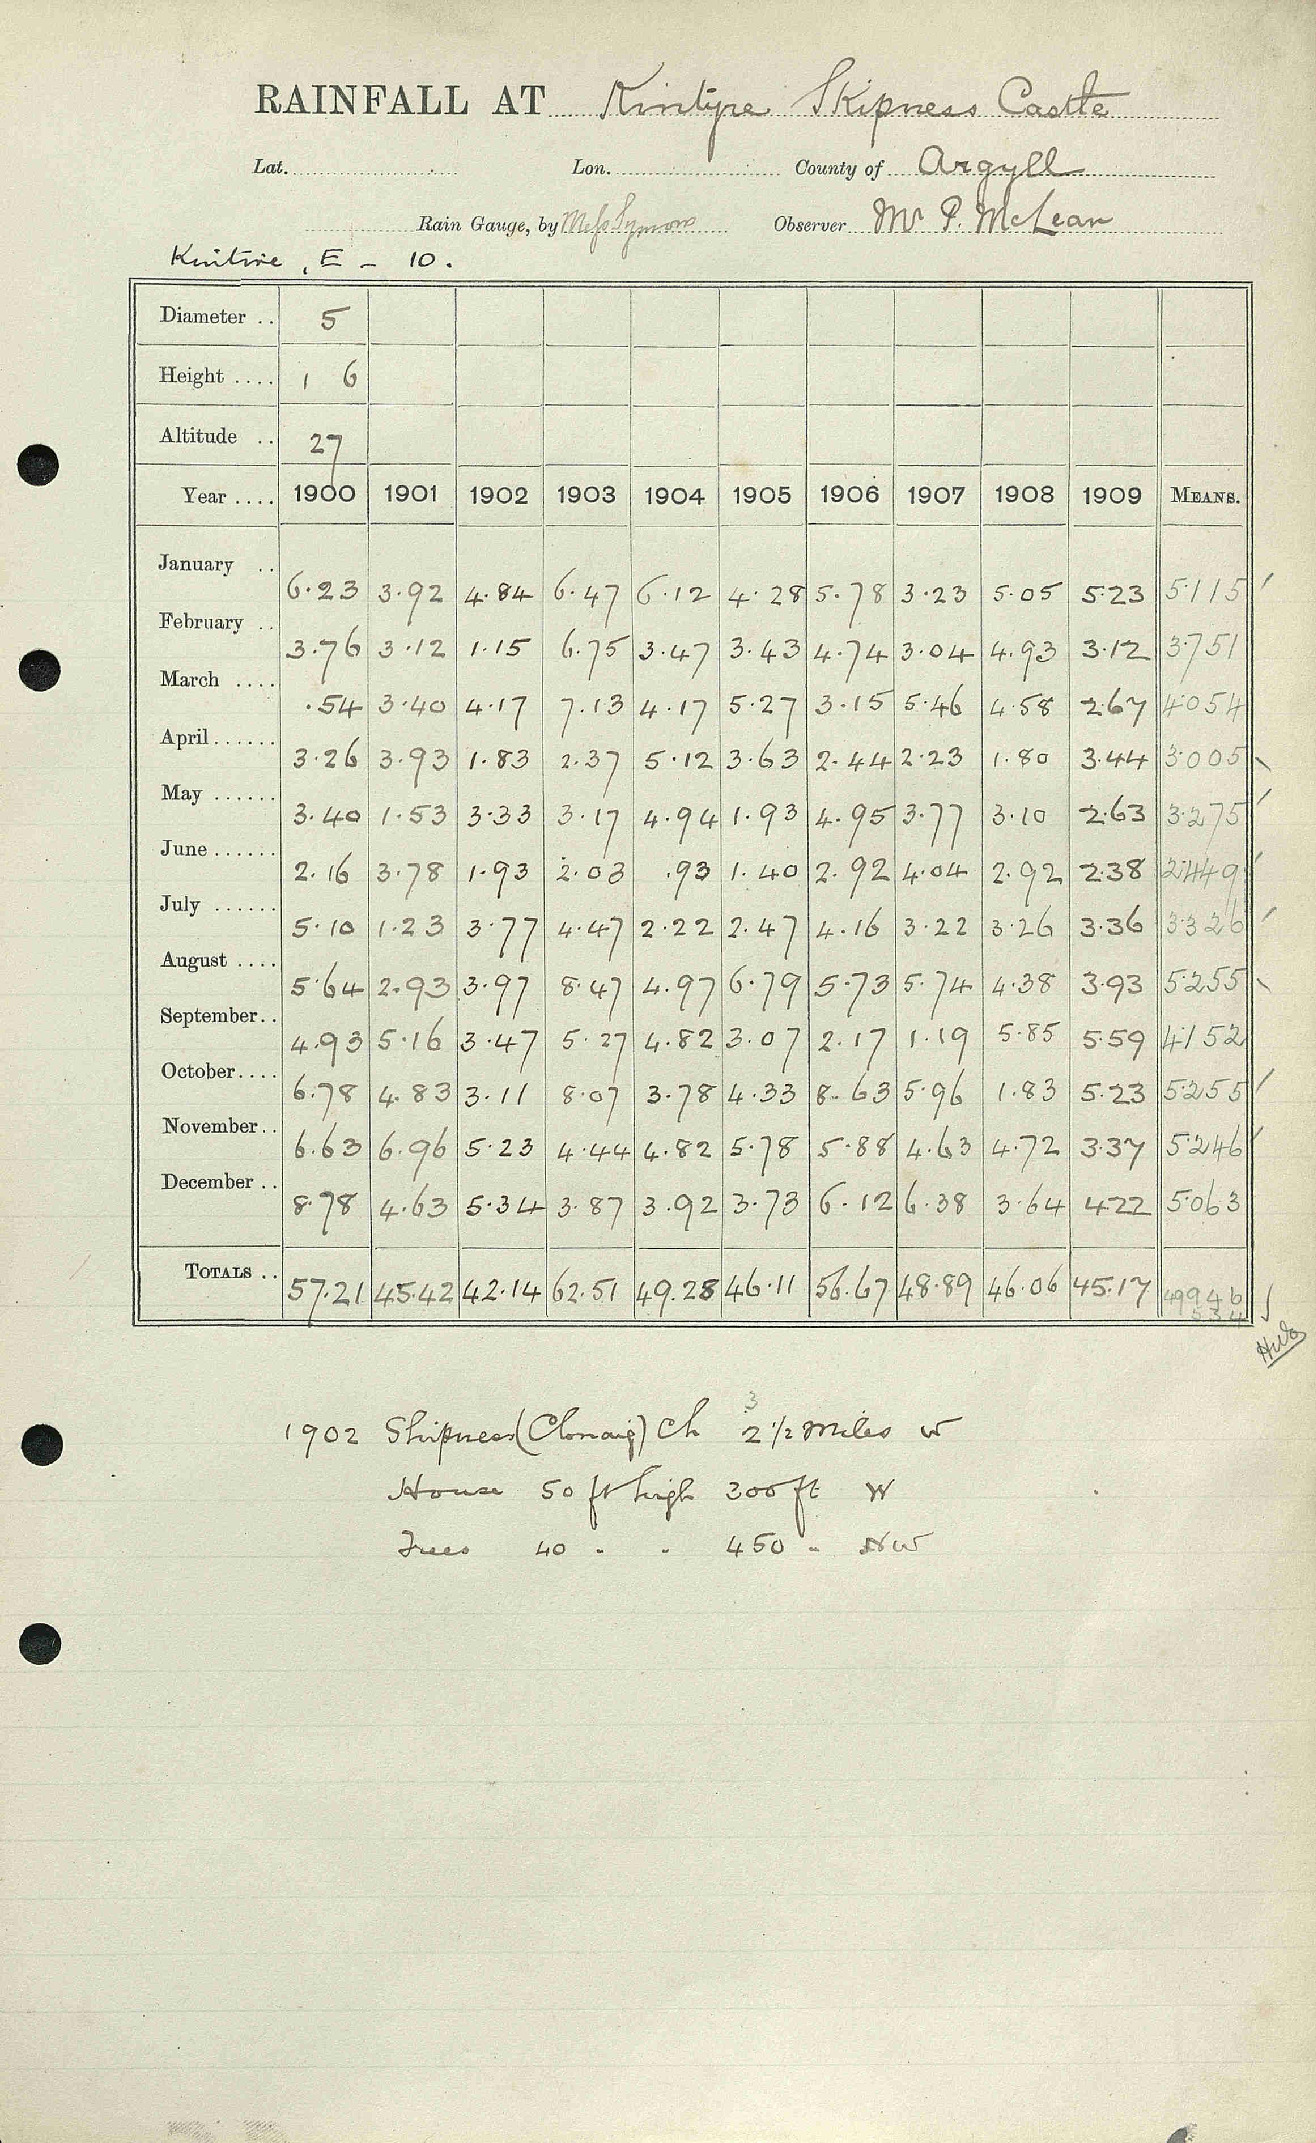 RAINFALL AT Kintyre Skipness Castle
Lat. Lon. County of Argyll
Rain Gauge, by Observer Mr P. McLean
Kintire, E – 10.
Diameter .. 5
Height .... 1 6
Altitude .. 27
Year .... 1900 1901 1902 1903 1904 1905 1906 1907 1908 1909 MEANS.
January .. 6.23 3.92 4.84 6.47 6.12 4.28 5.78 3.23 5.05 5.23 5.115
February .. 3.76 3.12 1.15 6.75 3.47 3.43 4.74 3.04 4.93 3.12 3.751
March .... .54 3.40 4.17 7.13 4.17 5.27 3.15 5.46 4.58 2.67 4.054
April ...... 3.26 3.93 1.83 2.37 5.12 3.63 2.44 2.23 1.80 3.44 3.005
May ...... 3.40 1.53 3.33 3.17 4.94 1.93 4.95 3.77 3.10 2.63 3.275
June ...... 2.16 3.78 1.93 2.03 .93 1.40 2.92 4.04 2.92 2.38 2.449
July ...... 5.10 1.23 3.77 4.47 2.22 2.47 4.16 3.22 3.26 3.36 3.326
August .... 5.64 2.93 3.97 8.47 4.97 6.79 5.73 5.74 4.38 3.93 5.255
September .. 4.93 5.16 3.47 5.27 4.82 3.07 2.17 1.19 5.85 5.59 4.152
October .... 6.78 4.83 3.11 8.07 3.78 4.33 8.63 5.96 1.83 5.23 5.255
November .. 6.63 6.96 5.23 4.44 4.82 5.78 5.88 4.63 4.72 3.37 5.246
December .. 8.78 4.63 5.34 3.87 3.92 3.73 6.12 6.38 3.64 4.22 5.063
TOTALS .. 57.21 45.42 42.14 62.51 49.28 46.11 56.67 48.89 46.06 45.17 49946
534
3
1902 Skipness (Clonaig) Ch 2 1/2 miles W
House 50 ft high 300 ft W
Trees 40 " " 450 " NW